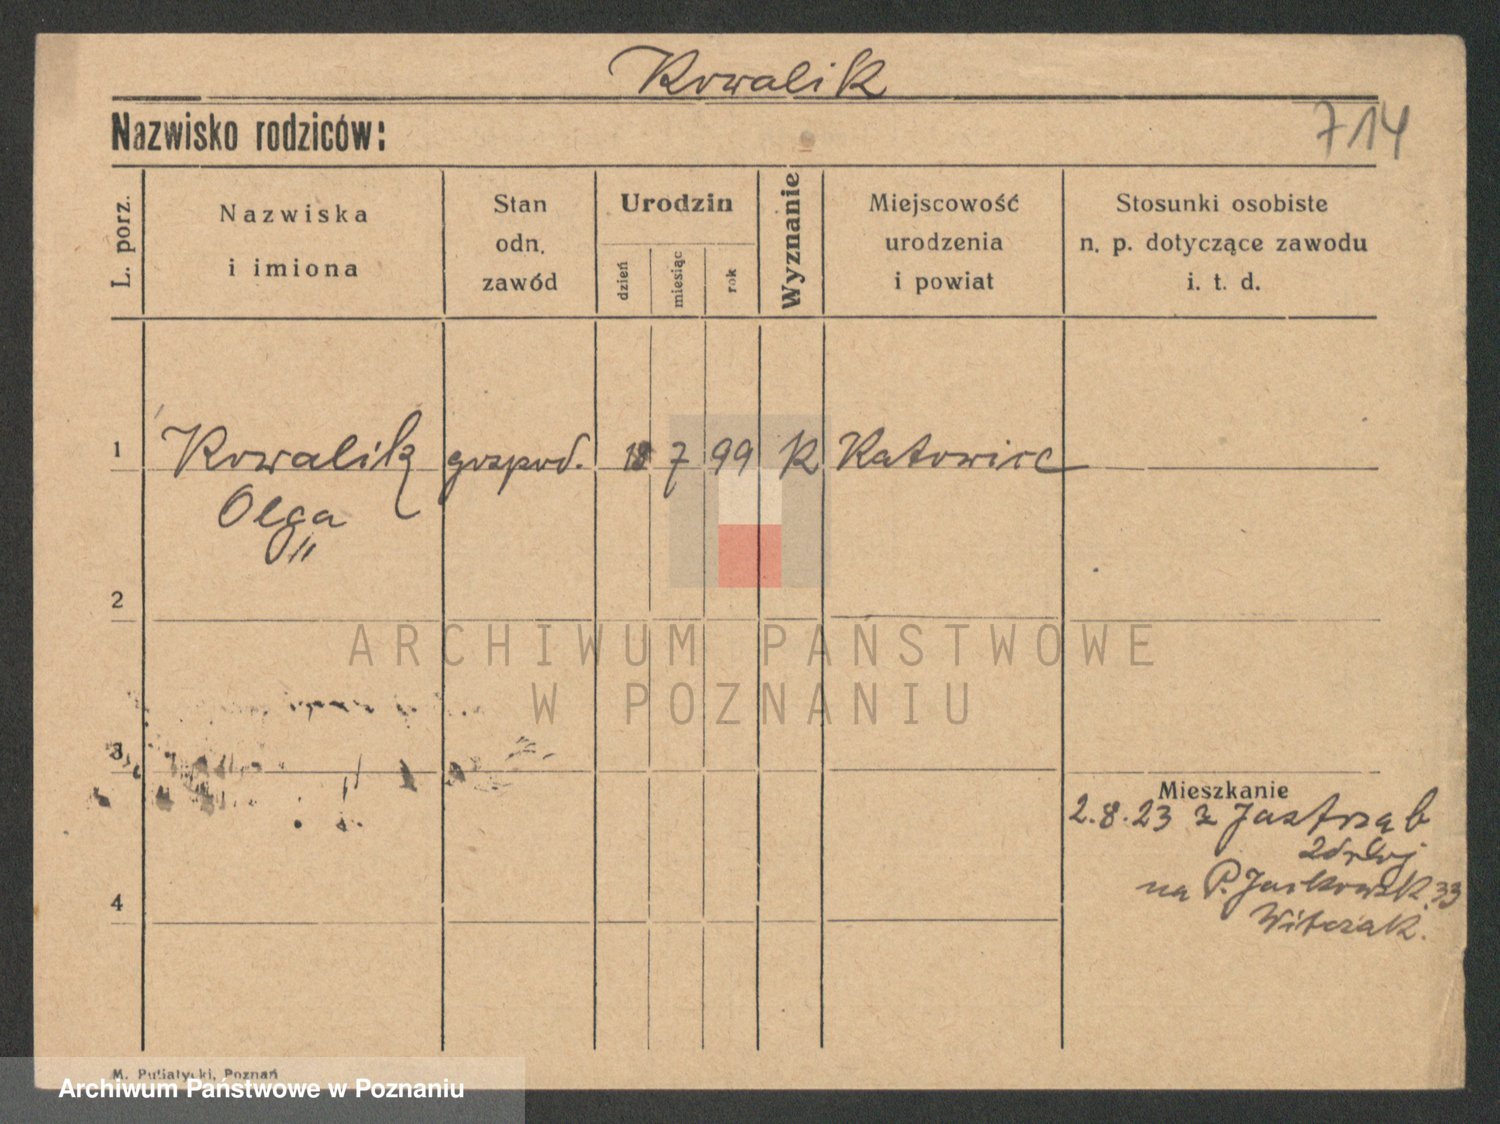 Kowalik
Nazwisko rodziców:
714
L. porz.
Nazwiska
i imiona
Stan
odn.
zawód
Urodzin
dzień
miesiąc
rok
Wyznanie
Miejscowość
urodzenia
i powiat
Stosunki osobiste
n. p. dotyczące zawodu
i. t. d.
1 Kowalik gospod. 18 7 99 K Katowice
Olga
2
ARCHIWUM PAŃSTWOWE
W POZNANIU
3
Mieszkanie
2.8.23 z Jastrząb
Zdrój
na P. Jackowsk. 33
Witczak.
4
M. Putiatycki, Poznań
Archiwum Państwowe w Poznaniu